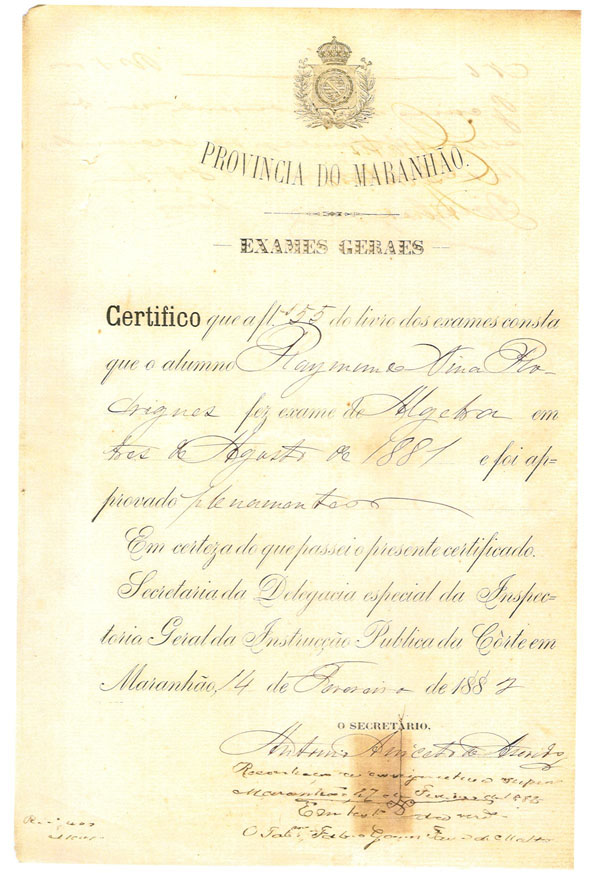 PROVINCIA DO MARANHÃO.
EXAMES GERAES
Certifico que a fl. 155 do livro dos exames consta
que o alumno Raymundo Nina Ro-
drigues fez exame de Algebra em
tres de Agosto de 1881 e foi ap-
provado plenamente
Em certeza do que passei o presente certificado.
Secretaria da Delegacia especial da Inspec-
toria Geral da Instrucção Publica da Côrte em
Maranhão, 14 de Fevereiro de 1882
O SECRETARIO.
Antonio Aniceto de
Maranhão 17 de Fevereiro de 1882
Em test
O